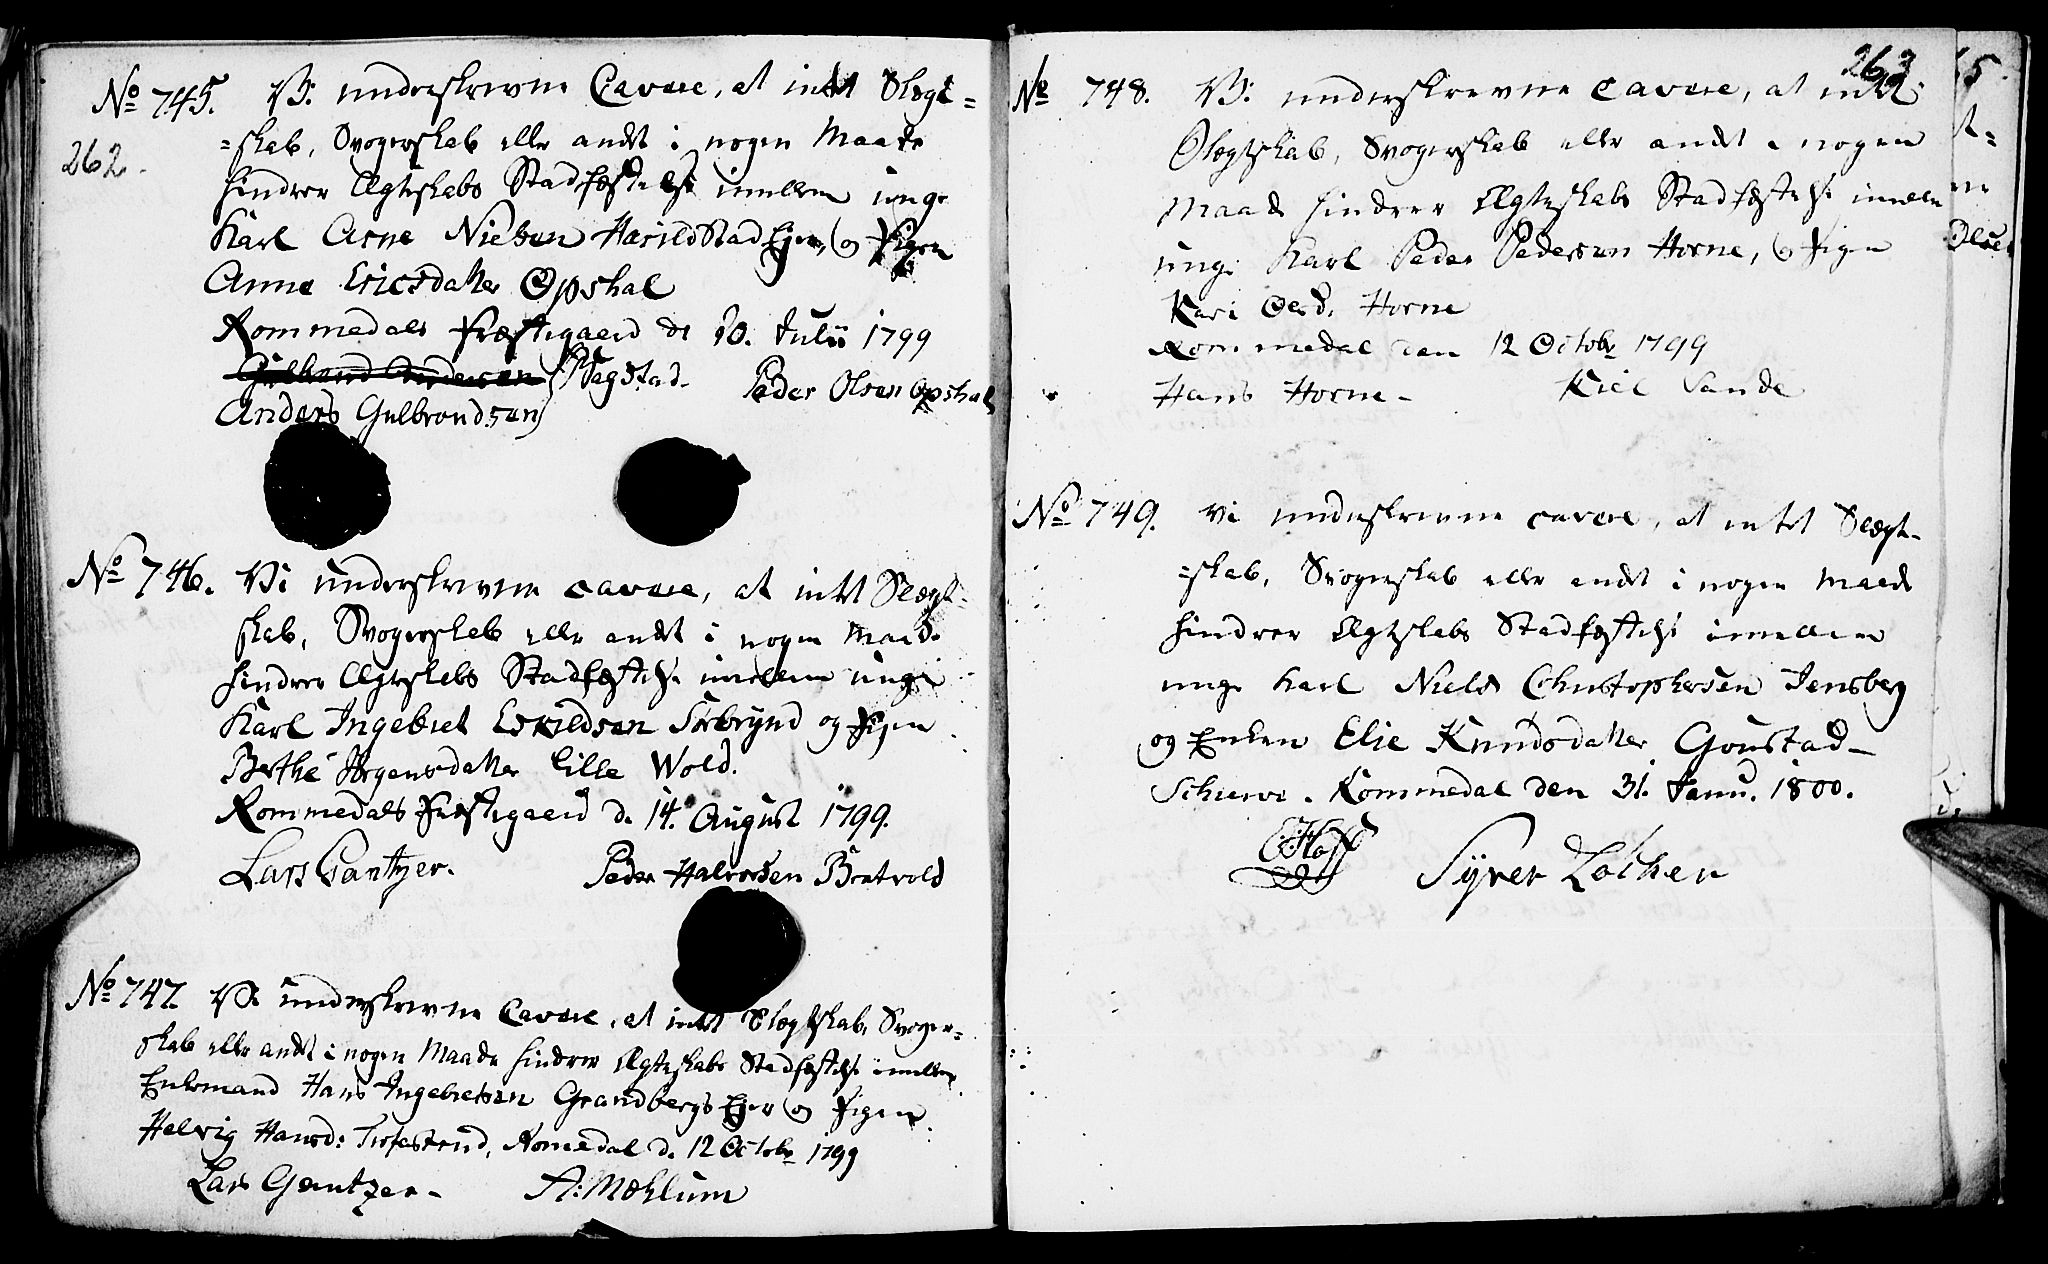 262.
No 745. Vi underskrevne Cavere, at intet Slægt=
=skab, Svogerskab eller andet i nogen Maade
hindrer Ægteskabs Stadfæstelse imellem unge
Karl Arne Nielsen Harildstad Ejer, og Pigen
Anne Ericsdatter Opshal
Rommedals Præstegaard de 10. Julii 1799
Gulbrand Andersen Bagstad Peder Olsen Opshal
Anders Gulbrondsen
No 746. Vi underskrevne cavere, at intet Slægt-
skab, Svogerskab eller andet i nogen Maade
hindrer Ægteskabs Stadfæstelse imellem unge
Karl Ingebret Eskildsen Sørbrynd og Pigen
Berthe Jørgensdatter Lille Wold.
Rommedals Præstegaard d. 14. August 1799.
Lars Gantzer. Peder Halvorsen Bratvold
No 747. Vi underskrevne Cavere, at intet Slægtskab, Svoger=
skab eller andet i nogen Maade hindrer Ægteskabs Stadfæstelse imellem
Enkemand Hans Ingebretsen Grandbergs Ejer og Pigen
Helvig Hansd: Romedal d. 12 Octobr 1799
Lars Gantzer - A: Mæhlum
263
No 748. Vi underskrevne cavere, at intet
Slægtskab, Svogerskab eller andet i nogen
Maade hindrer Ægteskabs Stadfæstelse imellem
unge Karl Peder Pedersen Horne, og Pigen
Kari Olsd. Horne
Rommedal den 12 Octobr 1799
Hans Horne - Kiel Sande
No 749. Vi underskrevne cavere, at intet Slægt-
=skab, Svogerskab eller andet i nogen Maade
hindrer Ægteskabs Stadfæstelse imellem
unge Karl Niels Christophersen Jensberg
og Enken Elie Knudsdatter Goustad-
Rommedal den 31. Janu. 1800.
C: Hoff Syver Løchen